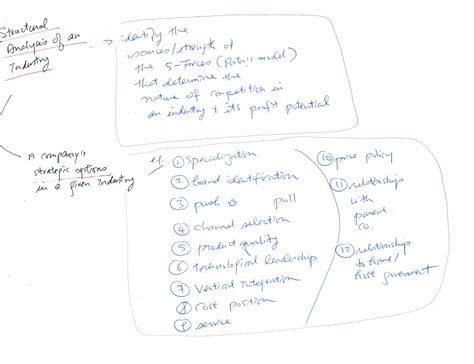 Structural
Analysis of an
Industry
identify the
sources/strength of
the 5-Forces (Porter's model)
that determine the
nature of competition in
an industry & its profit potential
A company's
strategic options
in a given industry
e.g. ① Specialization
② brand identification
③ push vs pull
④ channel selection
⑤ product quality
⑥ Technological leadership
⑦ Vertical Integration
⑧ cost position
⑨ service
⑩ price policy
⑪ relationships
with
parent
co.
⑫ relationships
to home/
host government